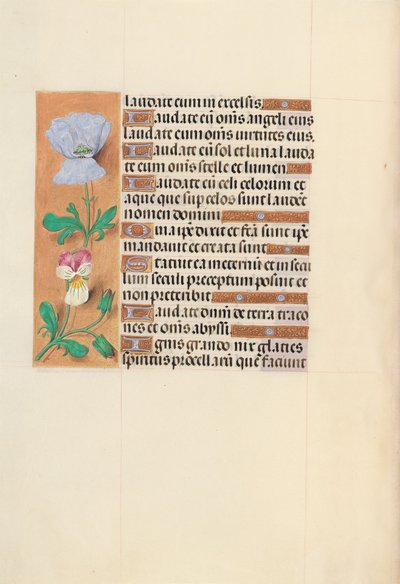 laudate eum in excelsis
Laudate eū om̄s angeli eius
laudate eum om̄s uirtutes eius.
Laudate eū sol et luna lauda
te eum omīs stelle et lumen
Laudate eū celi celorum et
aque que sup celos sunt laudēt
nomen domini
Quia ip̄e dixit et fcā sunt ip̄e
mandauit et creata sunt
Statuit ea in eternū et in secu
lum seculi preceptum posuit et
non preteribit
Laudate dn̄m de terra traco
nes et om̄s abyssi
Ignis grando nix glacies
spiritus procellarū que faciunt